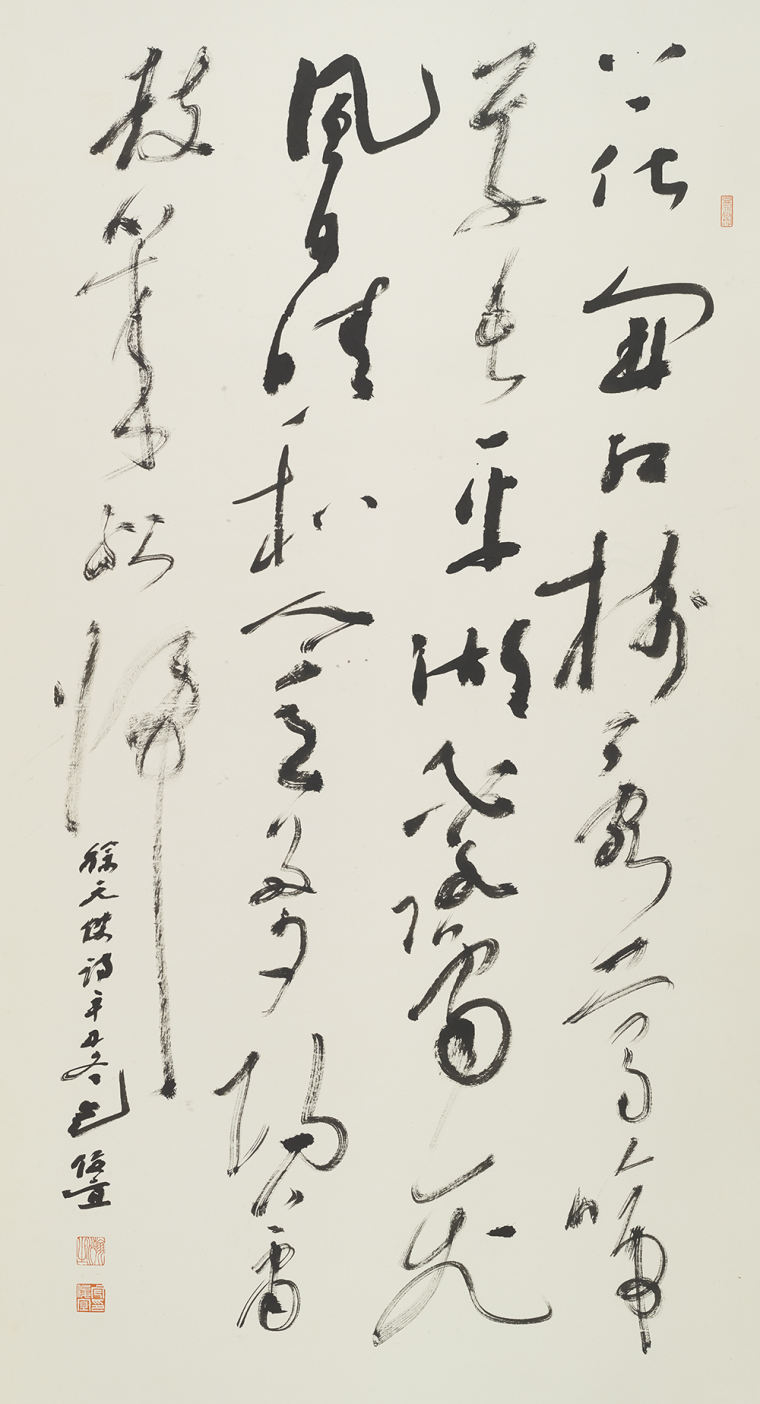 花開紅樹亂鶯啼
草長平湖白鷺飛
風日晴和人意好夕陽簫
鼓幾船歸
徐元傑詩辛丑冬包俊宜